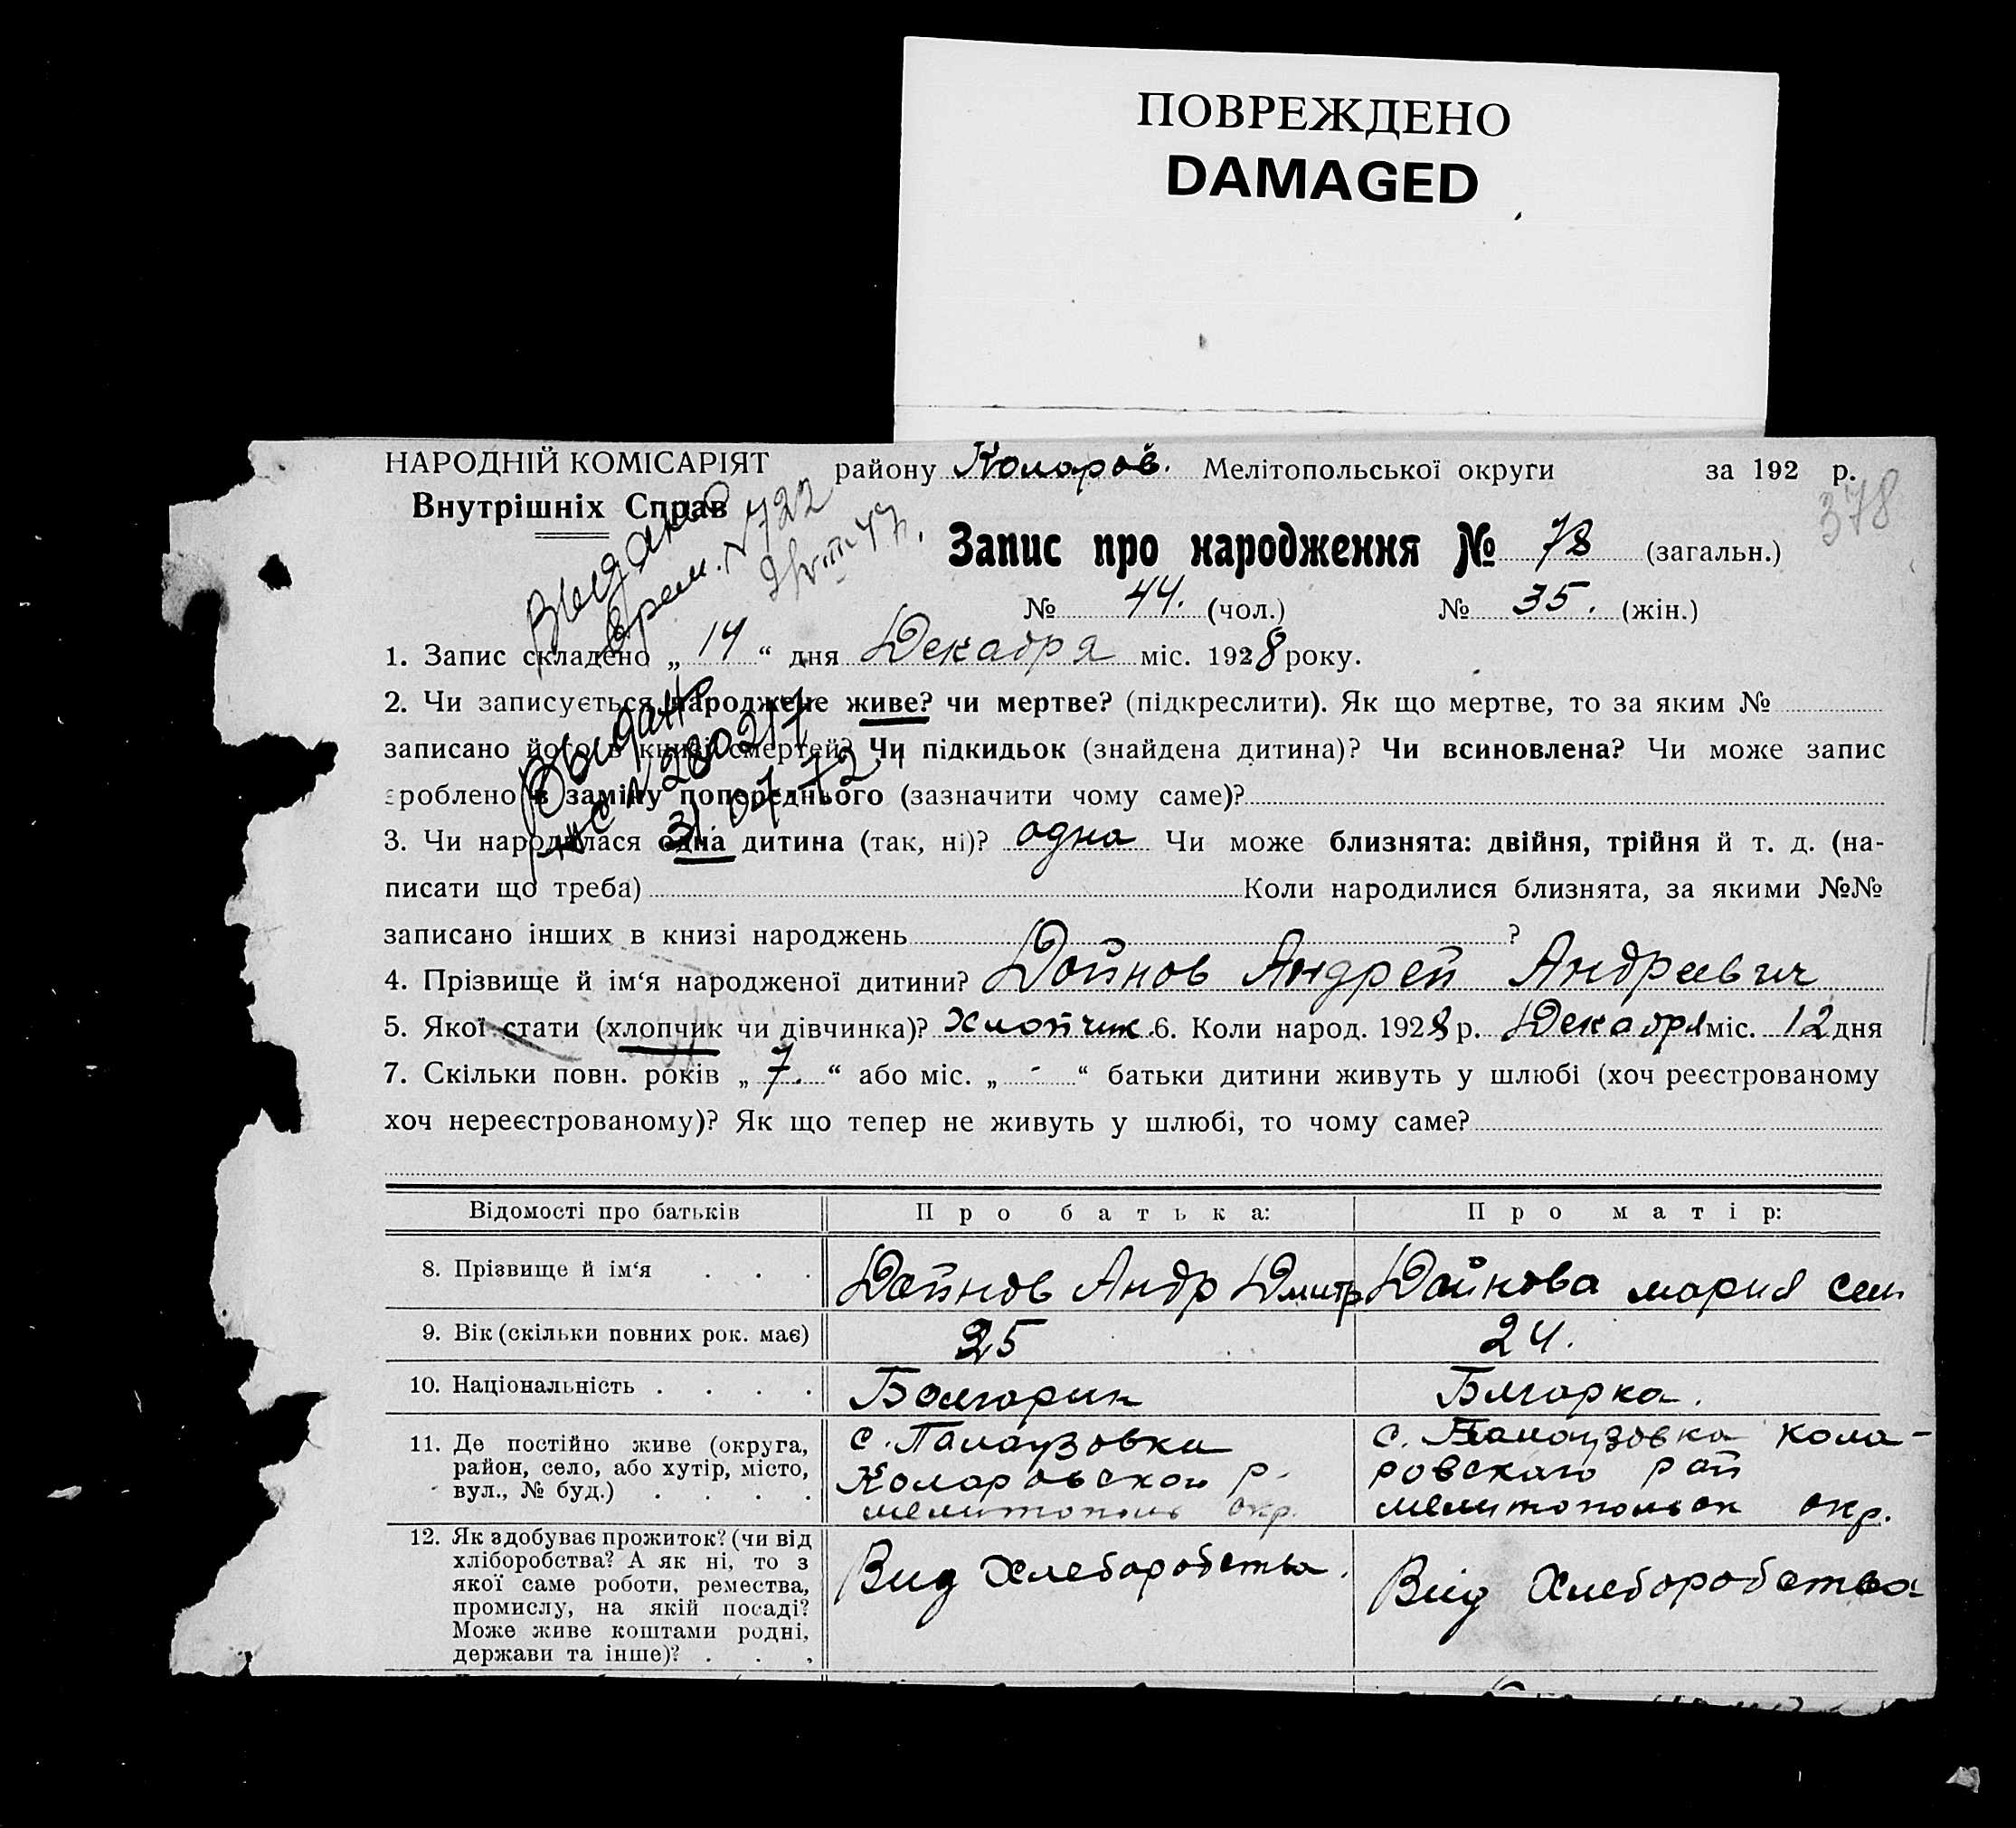 ПОВРЕЖДЕНО
DAMAGED
НАРОДНІЙ КОМІСАРІЯТ
Внутрішніх Справ
району Коларов. Мелітопольської округи за 192 р.
378
Выдано
№ 722
Запис про народження № 78 (загальн.)
№ 44. (чол.) № 35. (жін.)
1. Запис складено „ 14 “ дня Декабря міс. 1928 року.
2. Чи записується народжене живе? чи мертве? (підкреслити). Як що мертве, то за яким №
записано його в книзі смертей? Чи підкидьок (знайдена дитина)? Чи всиновлена? Чи може запис
зроблено в заміну попереднього (зазначити чому саме)?
Выдано
№ 280217
31.07.72
3. Чи народилася одна дитина (так, ні)? одна Чи може близнята: двійня, трійня й т. д. (на-
писати що треба) Коли народилися близнята, за якими №№
записано інших в книзі народжень ?
4. Прізвище й ім‘я народженої дитини? Дойнов Андрей Андреевич
5. Якої стати (хлопчик чи дівчинка)? Хлопчик 6. Коли народ. 1928 р. Декабря міс. 12 дня
7. Скільки повн. років „ 7. “ або міс. „ - “ батьки дитини живуть у шлюбі (хоч реєстрованому
хоч нереєстрованому)? Як що тепер не живуть у шлюбі, то чому саме?
Відомості про батьків Про батька: Про матір:
8. Прізвище й ім‘я . . . Дойнов Андр Дмитр Дойнова мария сем
9. Вік (скільки повних рок. має) 25 24.
10. Національність . . . . Болгарин Блгарка.
11. Де постійно живе (округа,
район, село, або хутір, місто,
вул., № буд.) . . . .
с. Палаузовки
Коларовской р-
мелитополь окр.
с. Палаузовка кола-
ровскаго рай
мелитопольск окр.
12. Як здобуває прожиток? (чи від
хліборобства? А як ні, то з
якої саме роботи, ремества,
промислу, на якій посаді?
Може живе коштами родні,
держави та інше)? . . .
Вид Хлеборобства.
Вид Хлеборобства